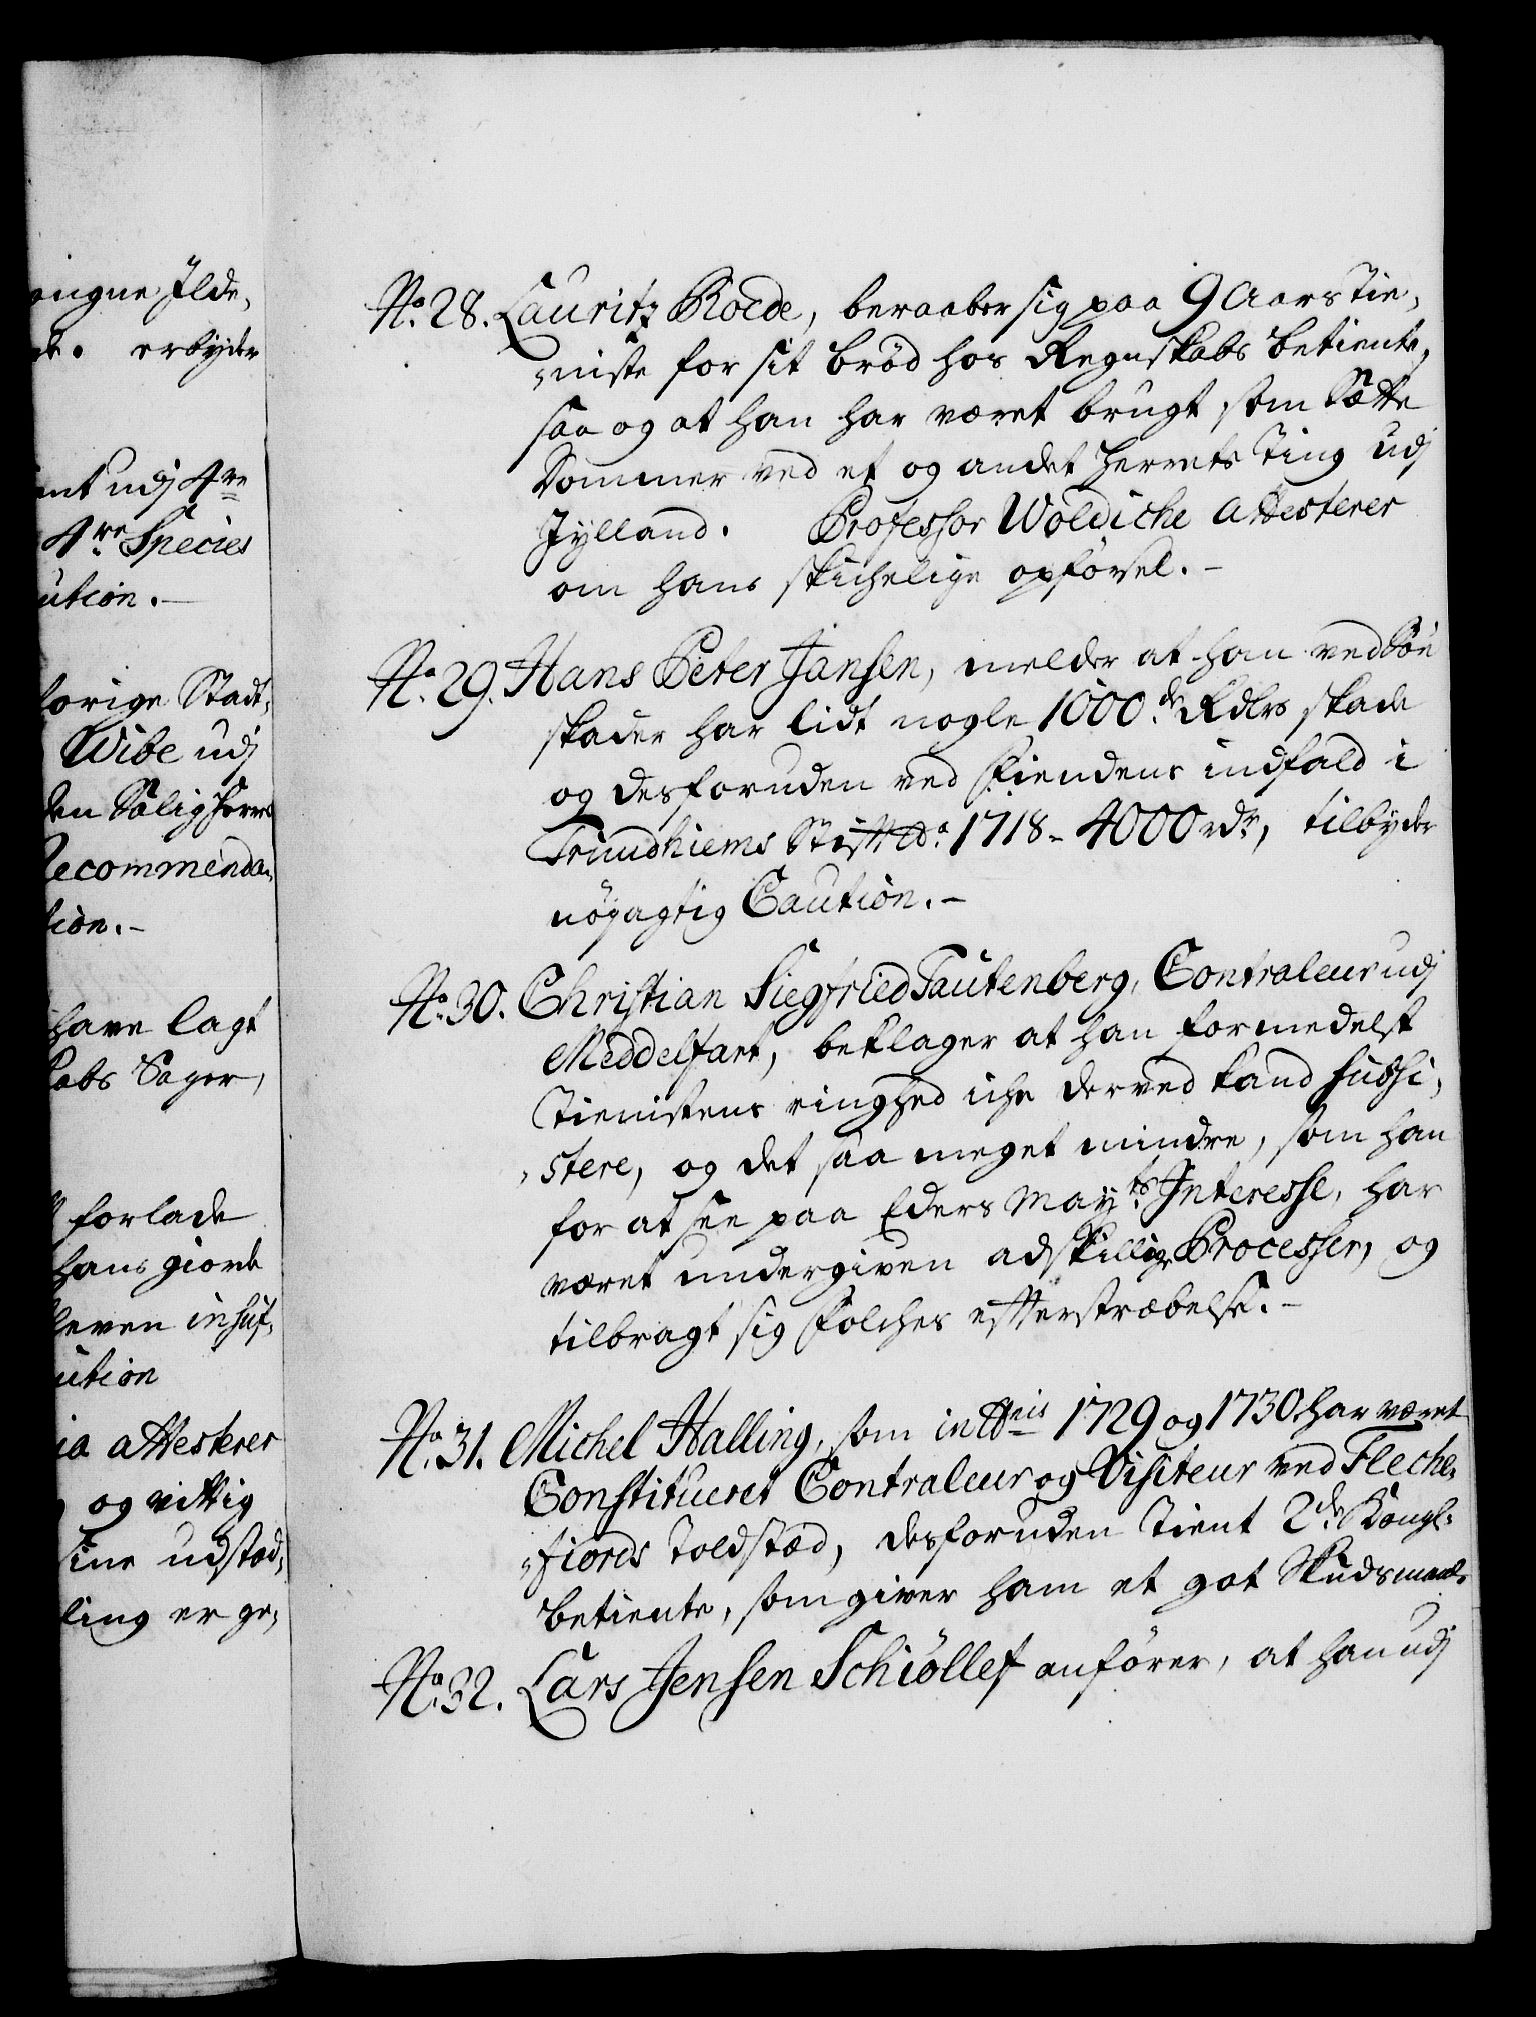 ongne Ilde,
de. erbyder
ent udj 4re
4re Species
ution.-
forige Stadt,
Wibe udj
den Salig Herres
Recommenda,
tion.-
have lagt
kabs Sager,
forlade
hans giorde
bleven insuf,
ution
ia attesterer
og rittig
sine udstod,
ling er ge,
No. 28. Lauritz Roede, beraaber sig paa 9 Aars Tie,
,niste for sit brød hos Regnskabs betiente,
saa og at han har været brugt som Sætte
Dommer ved et og andet Herrets Ting udj
Jylland. Professor Woldiche attesterer
om hans skichelige opførsel.-
No. 29. Hans Peter Jansen, melder at han ved Søe
skader har lidt nogle 1000.de Rdlrs skade
og desforuden ved Fiendens indfald i
Trundhiems Stift Ao. 1718 - 4000 rdr, tilbyder
nøyagtig Caution.-
No. 30. Christian Siegfried Tautenberg, Contraleur udj
Meddelfart, beklager at han formedelst
Tienistens ringhed iche derved kand subsi,
,stere, og det saa meget mindre, som han
for at see paa Eders Mayts. Interesse, har
været undergiven adskillige Processer, og
tilbragt sig Folches efterstræbelse.-
No. 31. Michel Halling, som in Anis 1729 og 1730 har været
Constitueret Contraleur og Visiteur ved Fleche,
,fiords Toldstæd, desforuden tient 2de Kongl.
betiente, som giver ham et got Skudsmaal.
No. 32. Lars Jensen Schiøllef anfører, at han udj